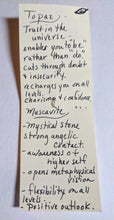 Topaz
Trust in the
universe -
enables you to "be"
rather than "do"
cuts through doubt
& insecurity.
recharges you on all
levels.
charisma & confidence
Muscovite
- mystical stone
strong angelic
contact
- awareness of
higher self
- opens metaphysical
vision
- flexibility on all
levels
- positive outlook.